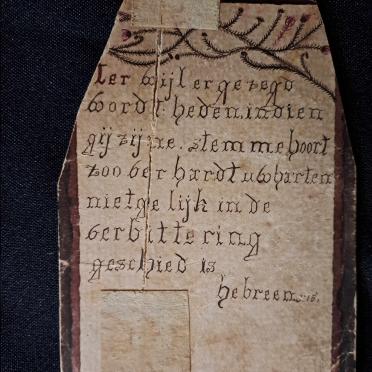 ter wijl er gezegd
wordt heden, indien
gij zijne stemme hoort
zoo verhardt uw harten
niet gelijk in de
verbittering
geschied is
hebreen 3:15.